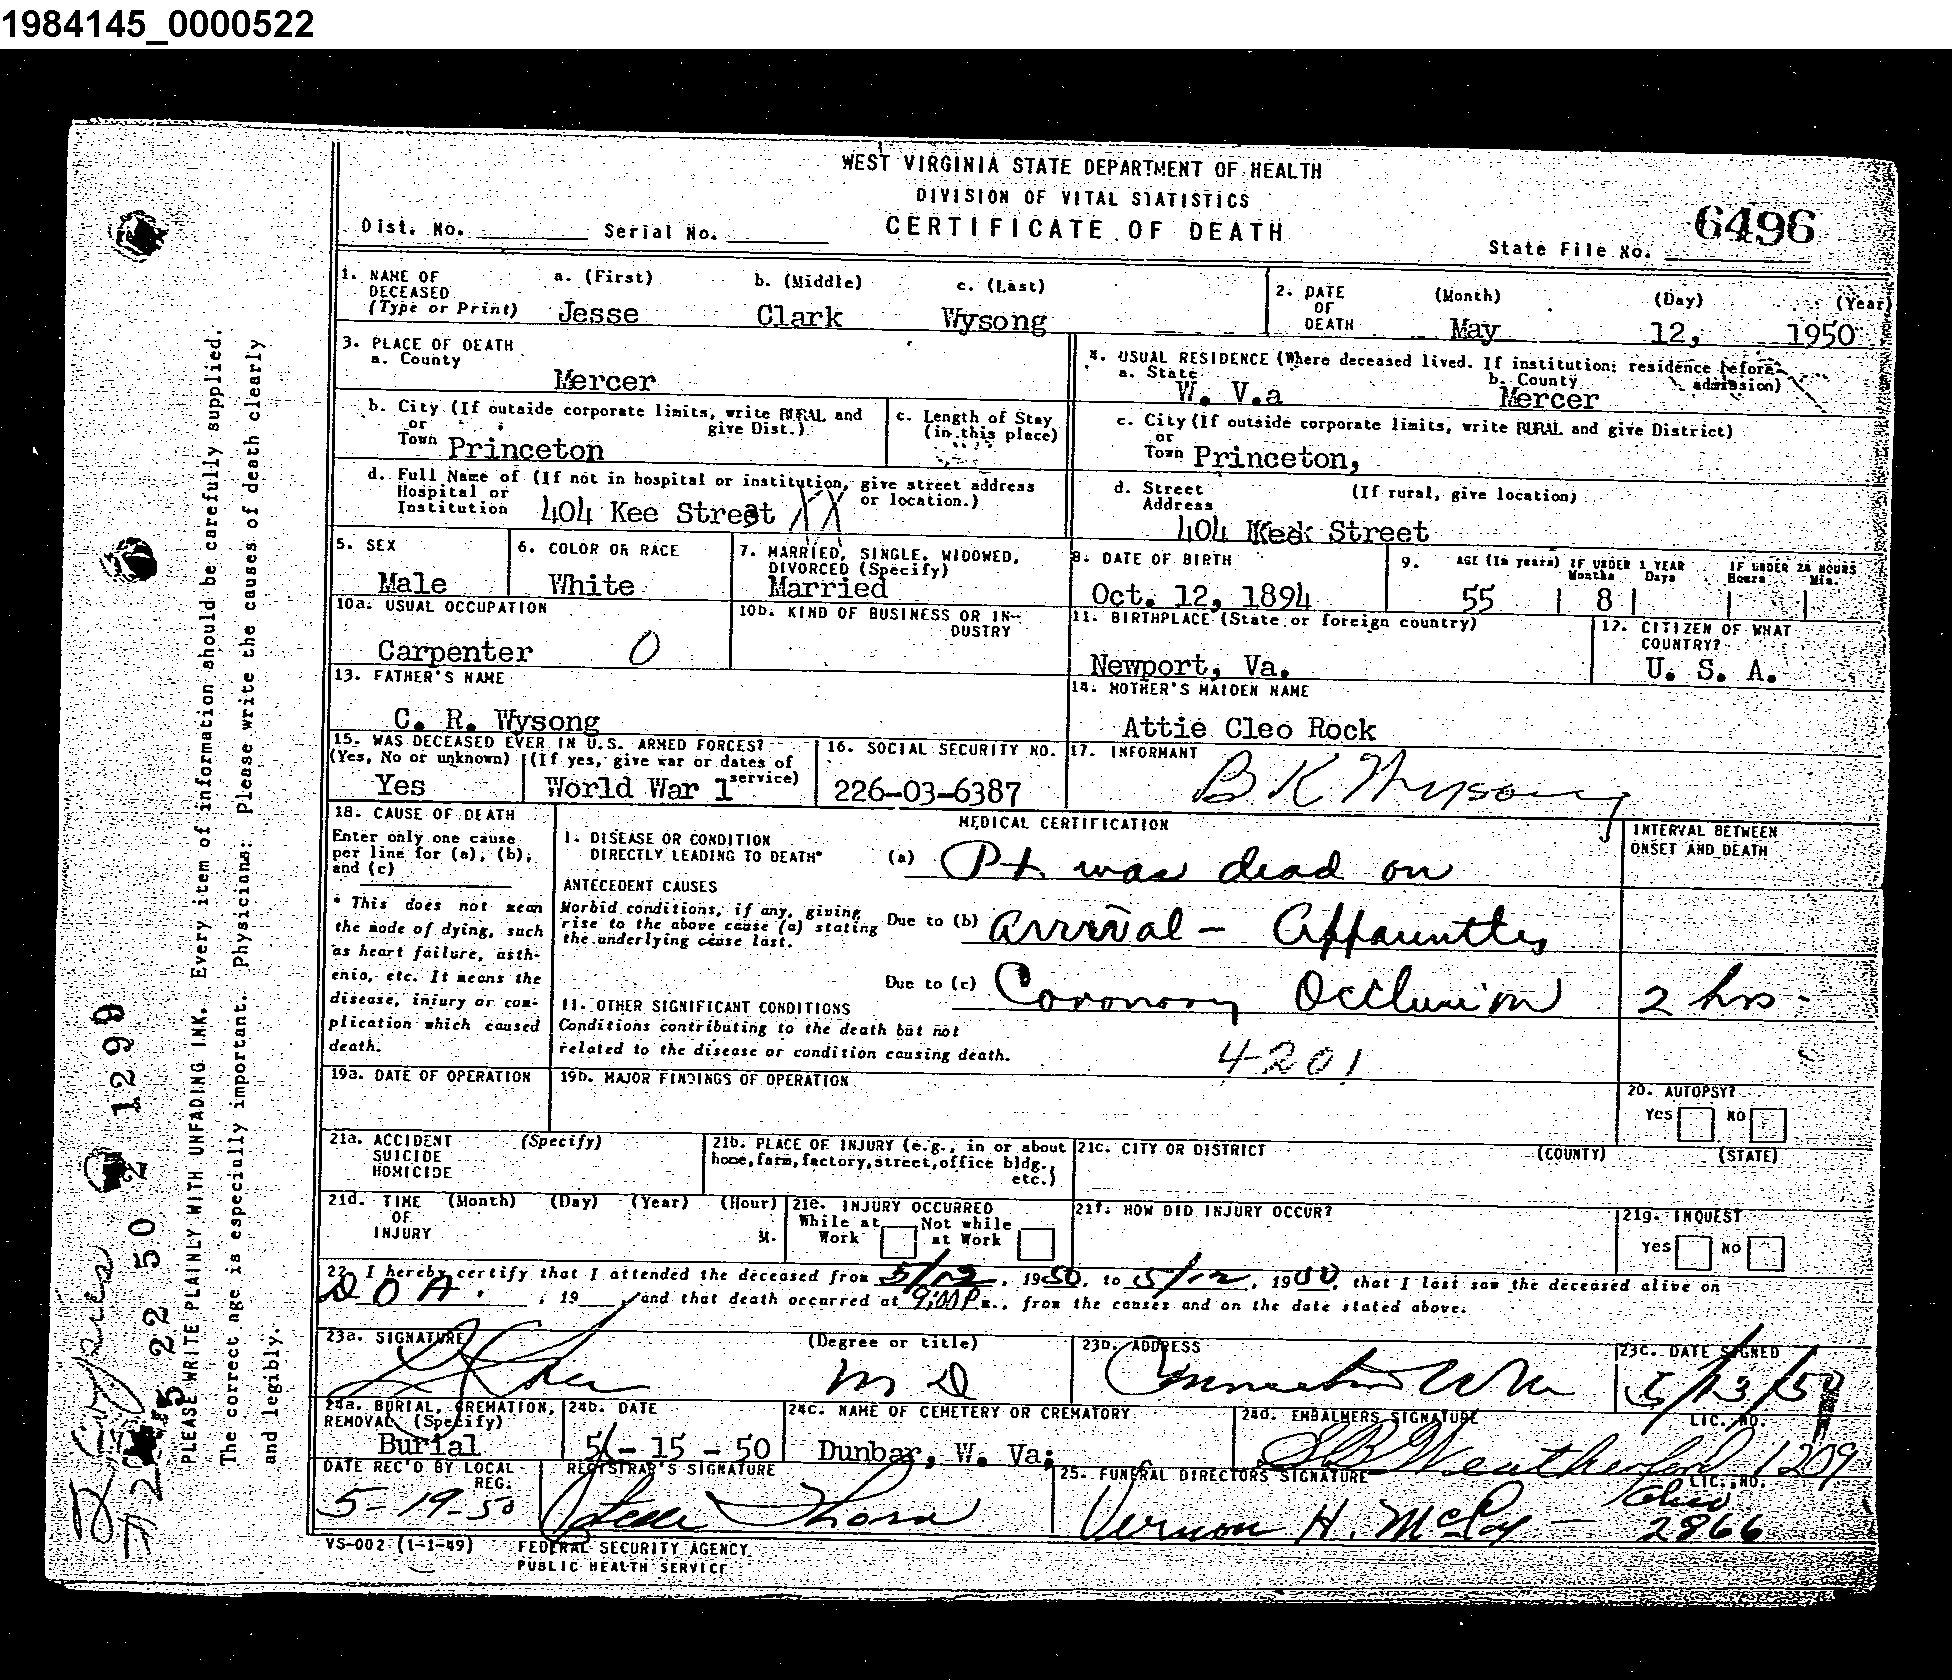 1984145_0000522
WEST VIRGINIA STATE DEPARTMENT OF HEALTH
DIVISION OF VITAL STATISTICS
CERTIFICATE OF DEATH
Dist. No. Serial No.
State File No. 6496
1. NAME OF DECEASED (Type or Print) a. (First) b. (Middle) c. (Last)
Jesse Clark Wysong
2. DATE OF DEATH (Month) (Day) (Year)
May 12, 1950
3. PLACE OF DEATH
a. County
Mercer
4. USUAL RESIDENCE (Where deceased lived. If institution: residence before admission)
a. State b. County
W. V.a Mercer
b. City (If outside corporate limits, write RURAL and give Dist.)
or Town Princeton
c. Length of Stay (in this place)
c. City (If outside corporate limits, write RURAL and give District)
or Town Princeton,
d. Full Name of (If not in hospital or institution, give street address or location.)
Hospital or Institution 404 Kee Street XX
d. Street Address (If rural, give location)
404 Kee Street
5. SEX
Male
6. COLOR OR RACE
White
7. MARRIED, SINGLE, WIDOWED, DIVORCED (Specify)
Married
8. DATE OF BIRTH
Oct. 12, 1894
9. AGE (In years) IF UNDER 1 YEAR Months Days IF UNDER 24 HOURS Hours Min.
55 8
10a. USUAL OCCUPATION
Carpenter 0
10b. KIND OF BUSINESS OR INDUSTRY
11. BIRTHPLACE (State or foreign country)
Newport, Va.
12. CITIZEN OF WHAT COUNTRY?
U. S. A.
13. FATHER'S NAME
C. R. Wysong
14. MOTHER'S MAIDEN NAME
Attie Cleo Rock
15. WAS DECEASED EVER IN U.S. ARMED FORCES?
(Yes, No or unknown) (If yes, give war or dates of service)
Yes World War 1
16. SOCIAL SECURITY NO.
226-03-6387
17. INFORMANT
B K Wysong
18. CAUSE OF DEATH
Enter only one cause per line for (a), (b), and (c)
* This does not mean the mode of dying, such as heart failure, asthenia, etc. It means the disease, injury or complication which caused death.
MEDICAL CERTIFICATION
INTERVAL BETWEEN ONSET AND DEATH
I. DISEASE OR CONDITION DIRECTLY LEADING TO DEATH* (a) Pt was dead on
ANTECEDENT CAUSES
Morbid conditions, if any, giving rise to the above cause (a) stating the underlying cause last.
Due to (b) arrival - Appauntly
Due to (c) Coronary Occlusion 2 hrs.
11. OTHER SIGNIFICANT CONDITIONS
Conditions contributing to the death but not related to the disease or condition causing death.
4201
19a. DATE OF OPERATION
19b. MAJOR FINDINGS OF OPERATION
20. AUTOPSY?
Yes No
21a. ACCIDENT SUICIDE HOMICIDE (Specify)
21b. PLACE OF INJURY (e.g., in or about home, farm, factory, street, office bldg., etc.)
21c. CITY OR DISTRICT (COUNTY) (STATE)
21d. TIME OF INJURY (Month) (Day) (Year) (Hour) M.
21e. INJURY OCCURRED
While at Work Not while at Work
21f. HOW DID INJURY OCCUR?
21g. INQUEST
Yes No
22. I hereby certify that I attended the deceased from 5/12, 1950, to 5/12, 1950, that I last saw the deceased alive on
DOA., 19 , and that death occurred at 9:00 P m., from the causes and on the date stated above.
23a. SIGNATURE (Degree or title)
M D
23b. ADDRESS
Princeton W Va
23c. DATE SIGNED
5/13/50
24a. BURIAL, CREMATION, REMOVAL (Specify)
Burial
24b. DATE
5-15-50
24c. NAME OF CEMETERY OR CREMATORY
Dunbar, W. Va.
24d. EMBALMERS SIGNATURE LIC. NO.
Weatherford 1209
DATE REC'D BY LOCAL REG.
5-19-50
REGISTRAR'S SIGNATURE
Thorn
25. FUNERAL DIRECTORS SIGNATURE LIC. NO.
Vernon H. McCoy - Ohio 2866
VS-002 (1-1-49) FEDERAL SECURITY AGENCY
PUBLIC HEALTH SERVICE
PLEASE WRITE PLAINLY WITH UNFADING INK. Every item of information should be carefully supplied.
The correct age is especially important. Physicians: Please write the causes of death clearly
and legibly.
5 22 50 2 1299